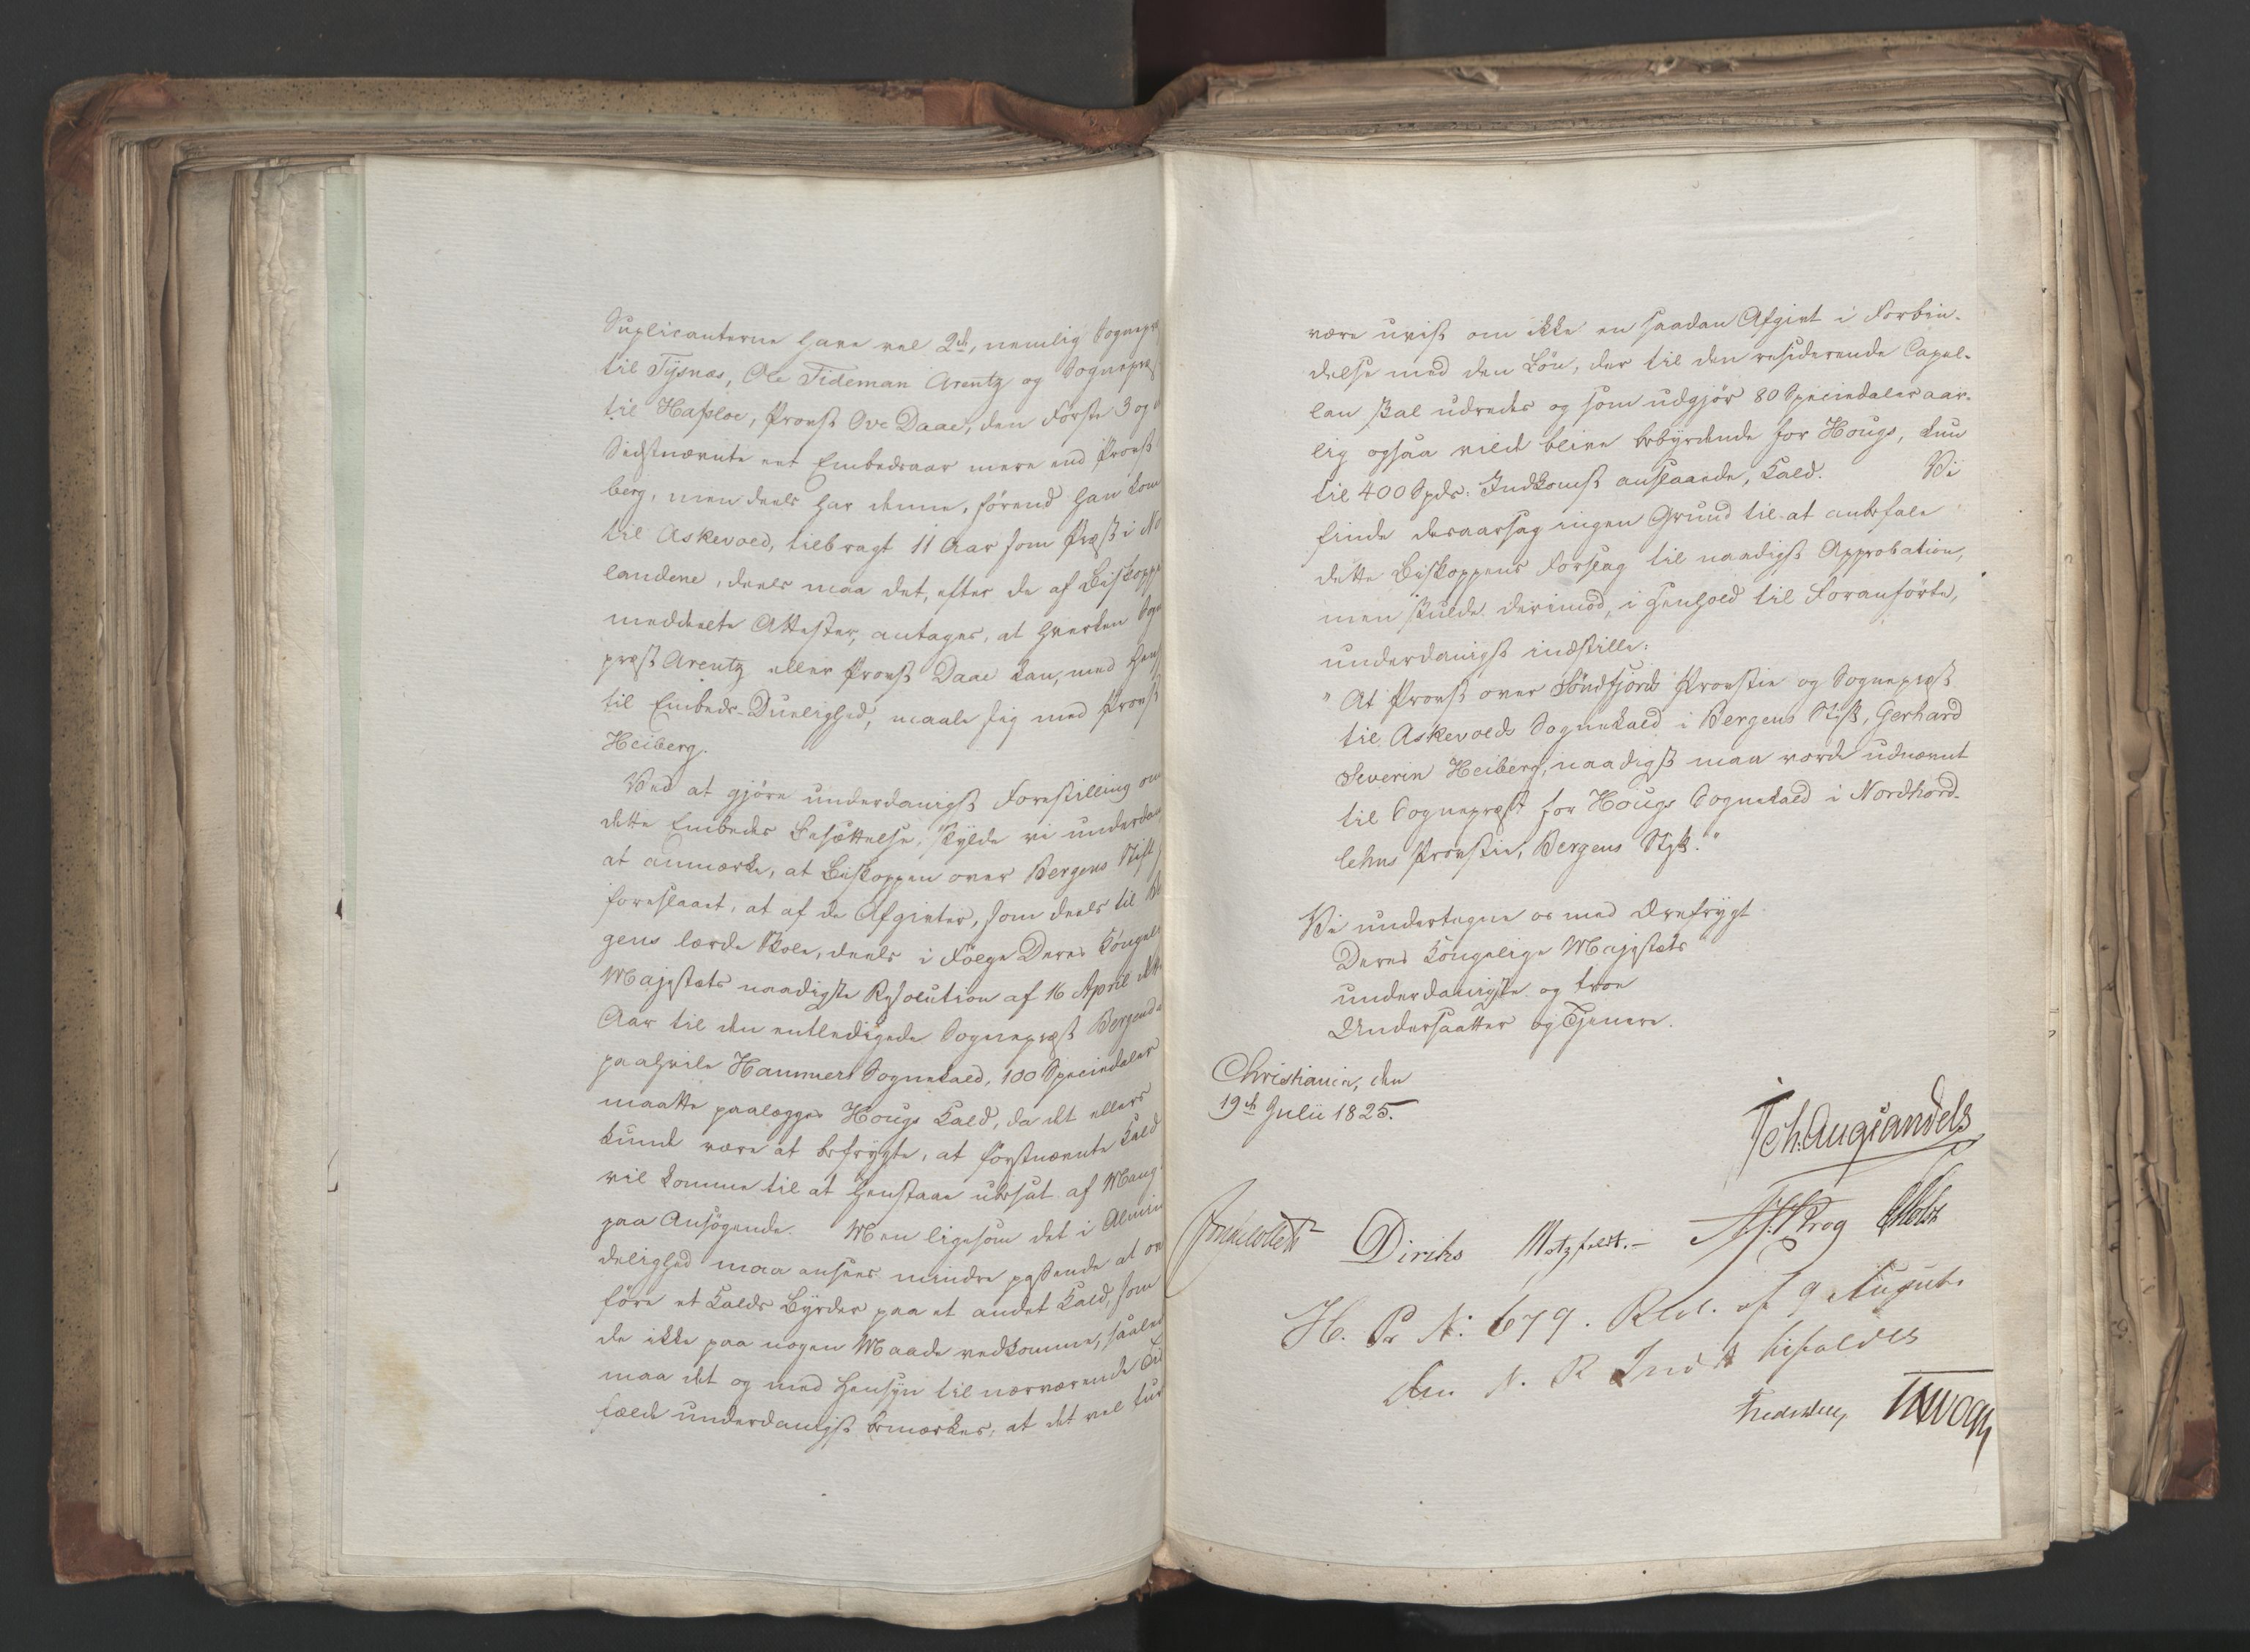 Suplicanterne have vel 2de, nemlig Sognepræ
til Tysnæs, Ole Tideman Arentz og Sognepræs
til Hafsloe, Provst Ove Daae, den Første 3 og
Sidstnævnte eet Embedsaar mere end Provst
berg, men deels har denne, førend han kom
til Askevold, tilbragt 11 Aar som Præst i No
landene, deels maa det, efter de af Biskoppe
meddeelte Attester, antages, at hverken Sogne
præst Arentz eller Provst Daae kan, med Hens
til Embeds-Duelighed, maale sig med Provst
Heiberg.
Ved at gjøre underdanigst Forestilling om
dette Embedes Besættelse, skylde vi underdan
at anmærke, at Biskoppen over Bergens Stift
foreslaaet, at af de Afgivter, som deels til Be
gens lærde Skole, deels i Følge Deres Kongel
Majestæts naadigste Resolution af 16 April dette
Aar til den entledigede Sognepræst Bergendal
paahvile Hammers Sognekald, 100 Speciedaler
maatte paalægges Hougs Kald, da det ellers
kunde være at befrygte, at førstnævnte Kald
vil komme til at henstaae ubesat af Mang
paa Ansøgende. Men ligesom det i Almin
delighed maa ansees mindre passende at ov
føre et Kalds Byrder paa et andet Kald, som
de ikke paa nogen Maade vedkomme, saaled
maa det og med Hensyn til nærværende Til
fælde underdanigst bemærkes, at det vel tur
være uvist om ikke en saadan Afgivt i Forbin-
delse med den Løn, der til den residerende Capel-
lan skal udredes og som udgjør 80 Speciedaler aar-
lig ogsaa vilde blive bebyrdende for Hougs, kun
til 400 Spdr: Indkomst anslaaede, Kald. Vi
finde desaarsag ingen Grund til at anbefale
dette Biskoppens Forslag til naadigst Approbation,
men skulde derimod, i Henhold til Foranførte,
underdanigst indstille:
"At Provst over Søndfjords Provstie og Sognepræst
til Askevolds Sognekald i Bergens Stift, Gerhard
Severin Heiberg, naadigst maa vorde udnævnt
til Sognepræst for Hougs Sognekald i Nordhord-
lehns Provstie, Bergens Stift."
Vi undertegne os med Ærefrygt
Deres Kongelige Majestæts
underdanigste og troe
Undersaatter og Tjenere.
Christiania, den
19de Julii 1825.
Joh. Aug Sandels
Jonas Collett Diriks Motzfeldt. Krog Holst
H. Pr N: 679. Res. af 9 August
den N. R. Indst. bifaldes